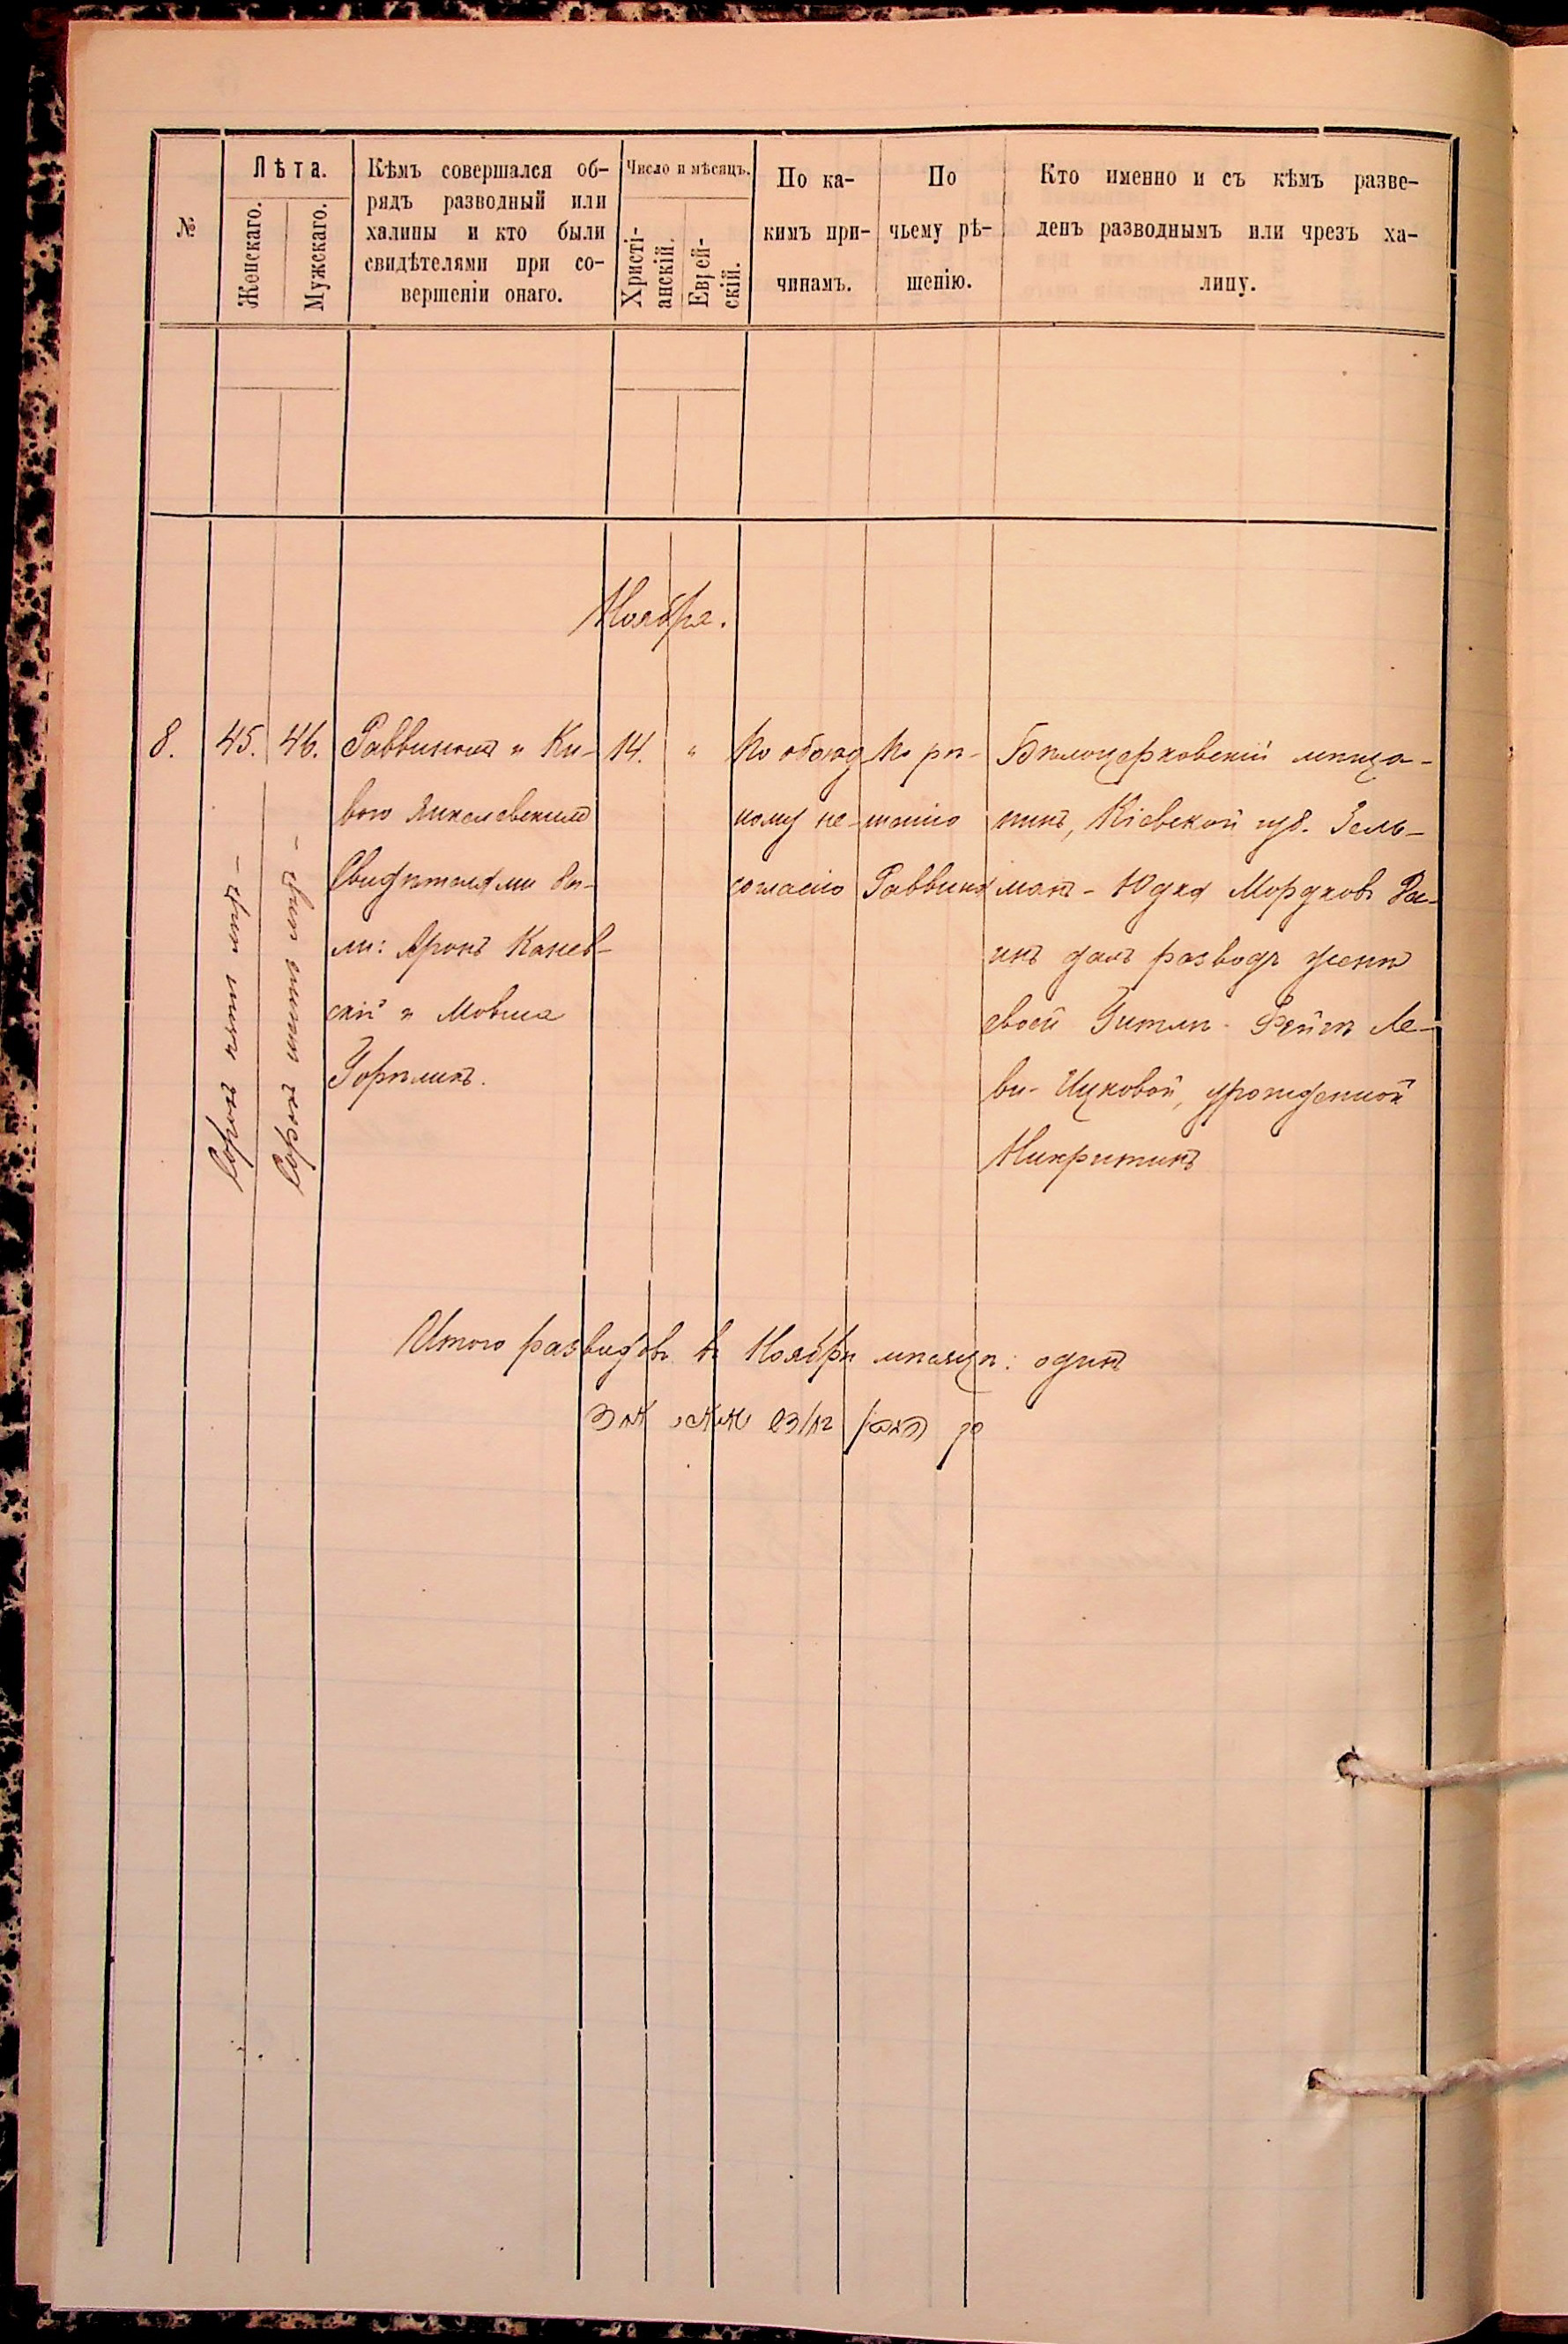 №
Лѣта.
Женскаго.
Мужскаго.
Кѣмъ совершался об-
рядъ разводный или
халицы и кто были
свидѣтелями при со-
вершеніи онаго.
Число и мѣсяцъ.
Христі-
анскій.
Еврей-
скій.
По ка-
кимъ при-
чинамъ.
По
чьему рѣ-
шенію.
Кто именно и съ кѣмъ разве-
денъ разводнымъ или чрезъ ха-
лицу.
Ноября.
8.
45.
Сорокъ пять лѣтъ –
46.
Сорокъ шесть лѣтъ –
Раввиномъ
Свидѣтелями бы-
ли: Аронъ Канев-
скій и Мовша
Горѣликъ.
14.
"
По обоюд
ному не-
согласію
По рѣ-
шенію
Раввина
Бѣлоцерковскій мѣща-
нинъ, Кіевской губ. Зель-
манъ - Юдка Мордковъ
далъ разводъ женѣ
своей Гитлѣ - Фейгѣ Ле-
ви - Ицковой, урожденной
Никритинъ
Итого разводовъ въ Ноябрѣ мѣсяцѣ: одинъ